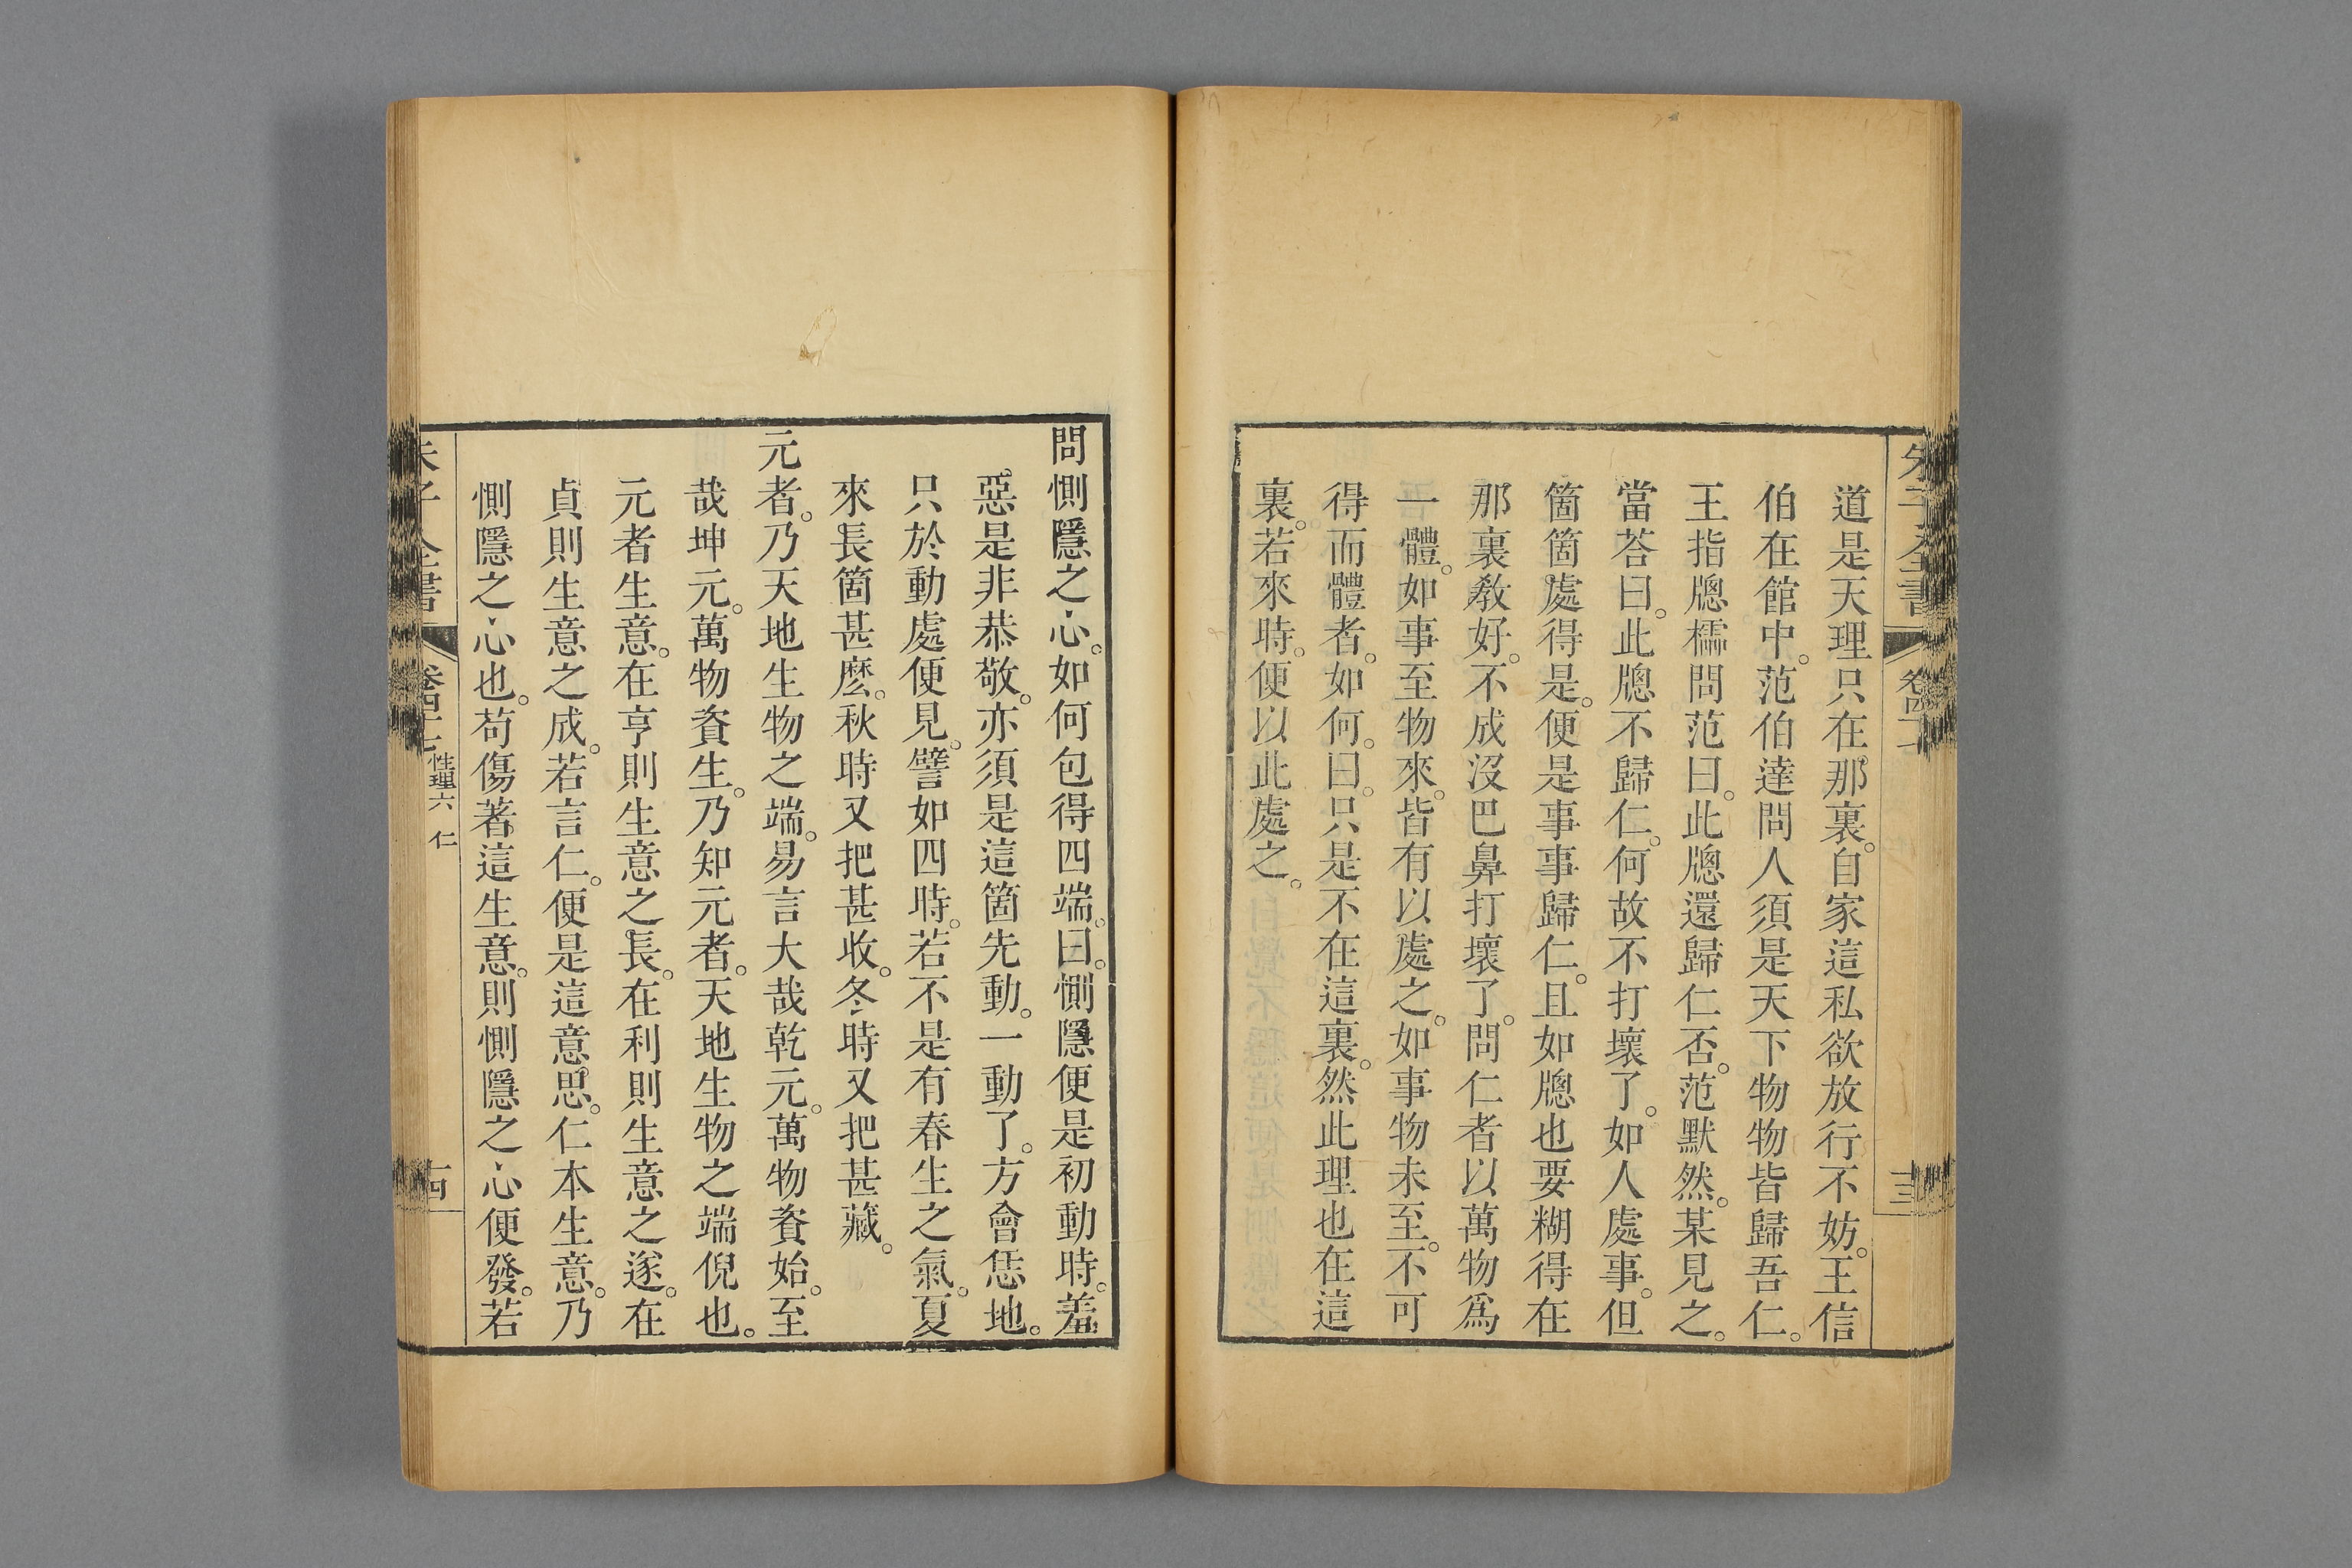 道是天理只在那裏。自家這私欲放行不妨。王信
伯在館中。范伯達問人須是天下物物皆歸吾仁。
王指牕櫺問范曰。此牕還歸仁否。范默然。某見之。
當荅曰。此牕不歸仁。何故不打壞了。如人處事。但
箇箇處得是。便是事事歸仁。且如牕也要糊得在
那裏教好。不成沒巴鼻打壞了。問仁者以萬物爲
一體。如事至物來。皆有以處之。如事物未至。不可
得而體者。如何。曰。只是不在這裏。然此理也在這
裏。若來時。便以此處之。
問惻隱之心。如何包得四端。曰。惻隱便是初動時。羞
惡是非恭敬。亦須是這箇先動。一動了。方會恁地。
只於動處便見。譬如四時。若不是有春生之氣。夏
來長箇甚麽。秋時又把甚收。冬時又把甚藏。
元者。乃天地生物之端。易言大哉乾元。萬物資始。至
哉坤元。萬物資生。乃知元者。天地生物之端倪也。
元者生意。在亨則生意之長。在利則生意之遂。在
貞則生意之成。若言仁。便是這意思。仁本生意。乃
惻隱之心也。苟傷著這生意。則惻隱之心便發。若
性理六 仁